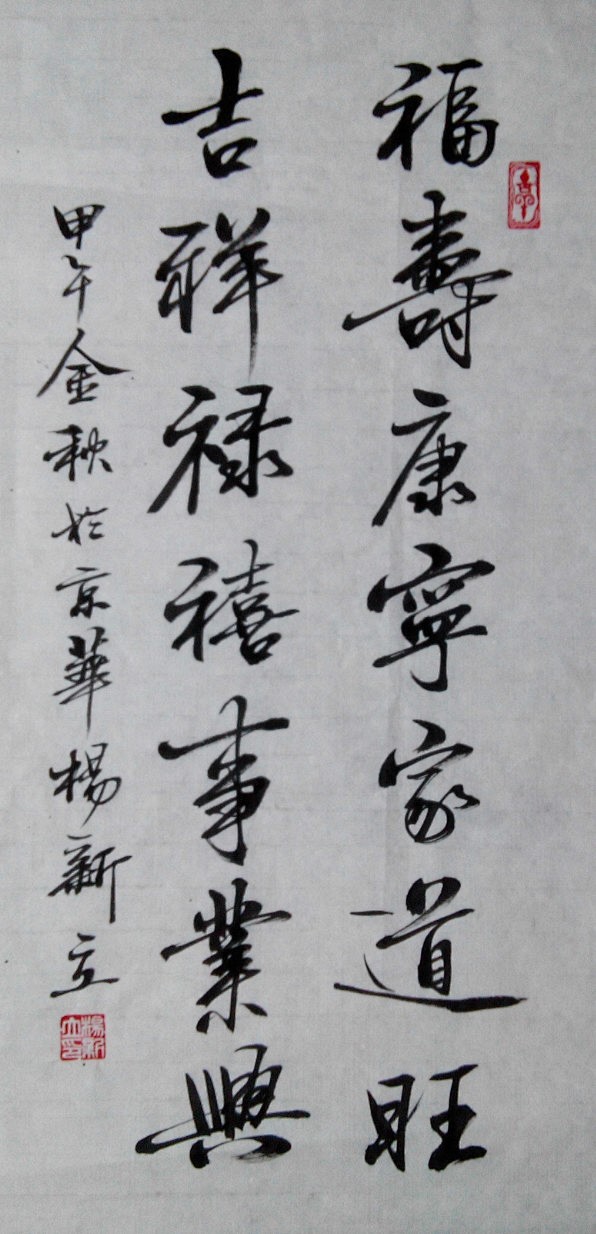 福壽康寧家道旺
吉祥禄禧事業興
甲午金秋於京華楊新立
楊新立印